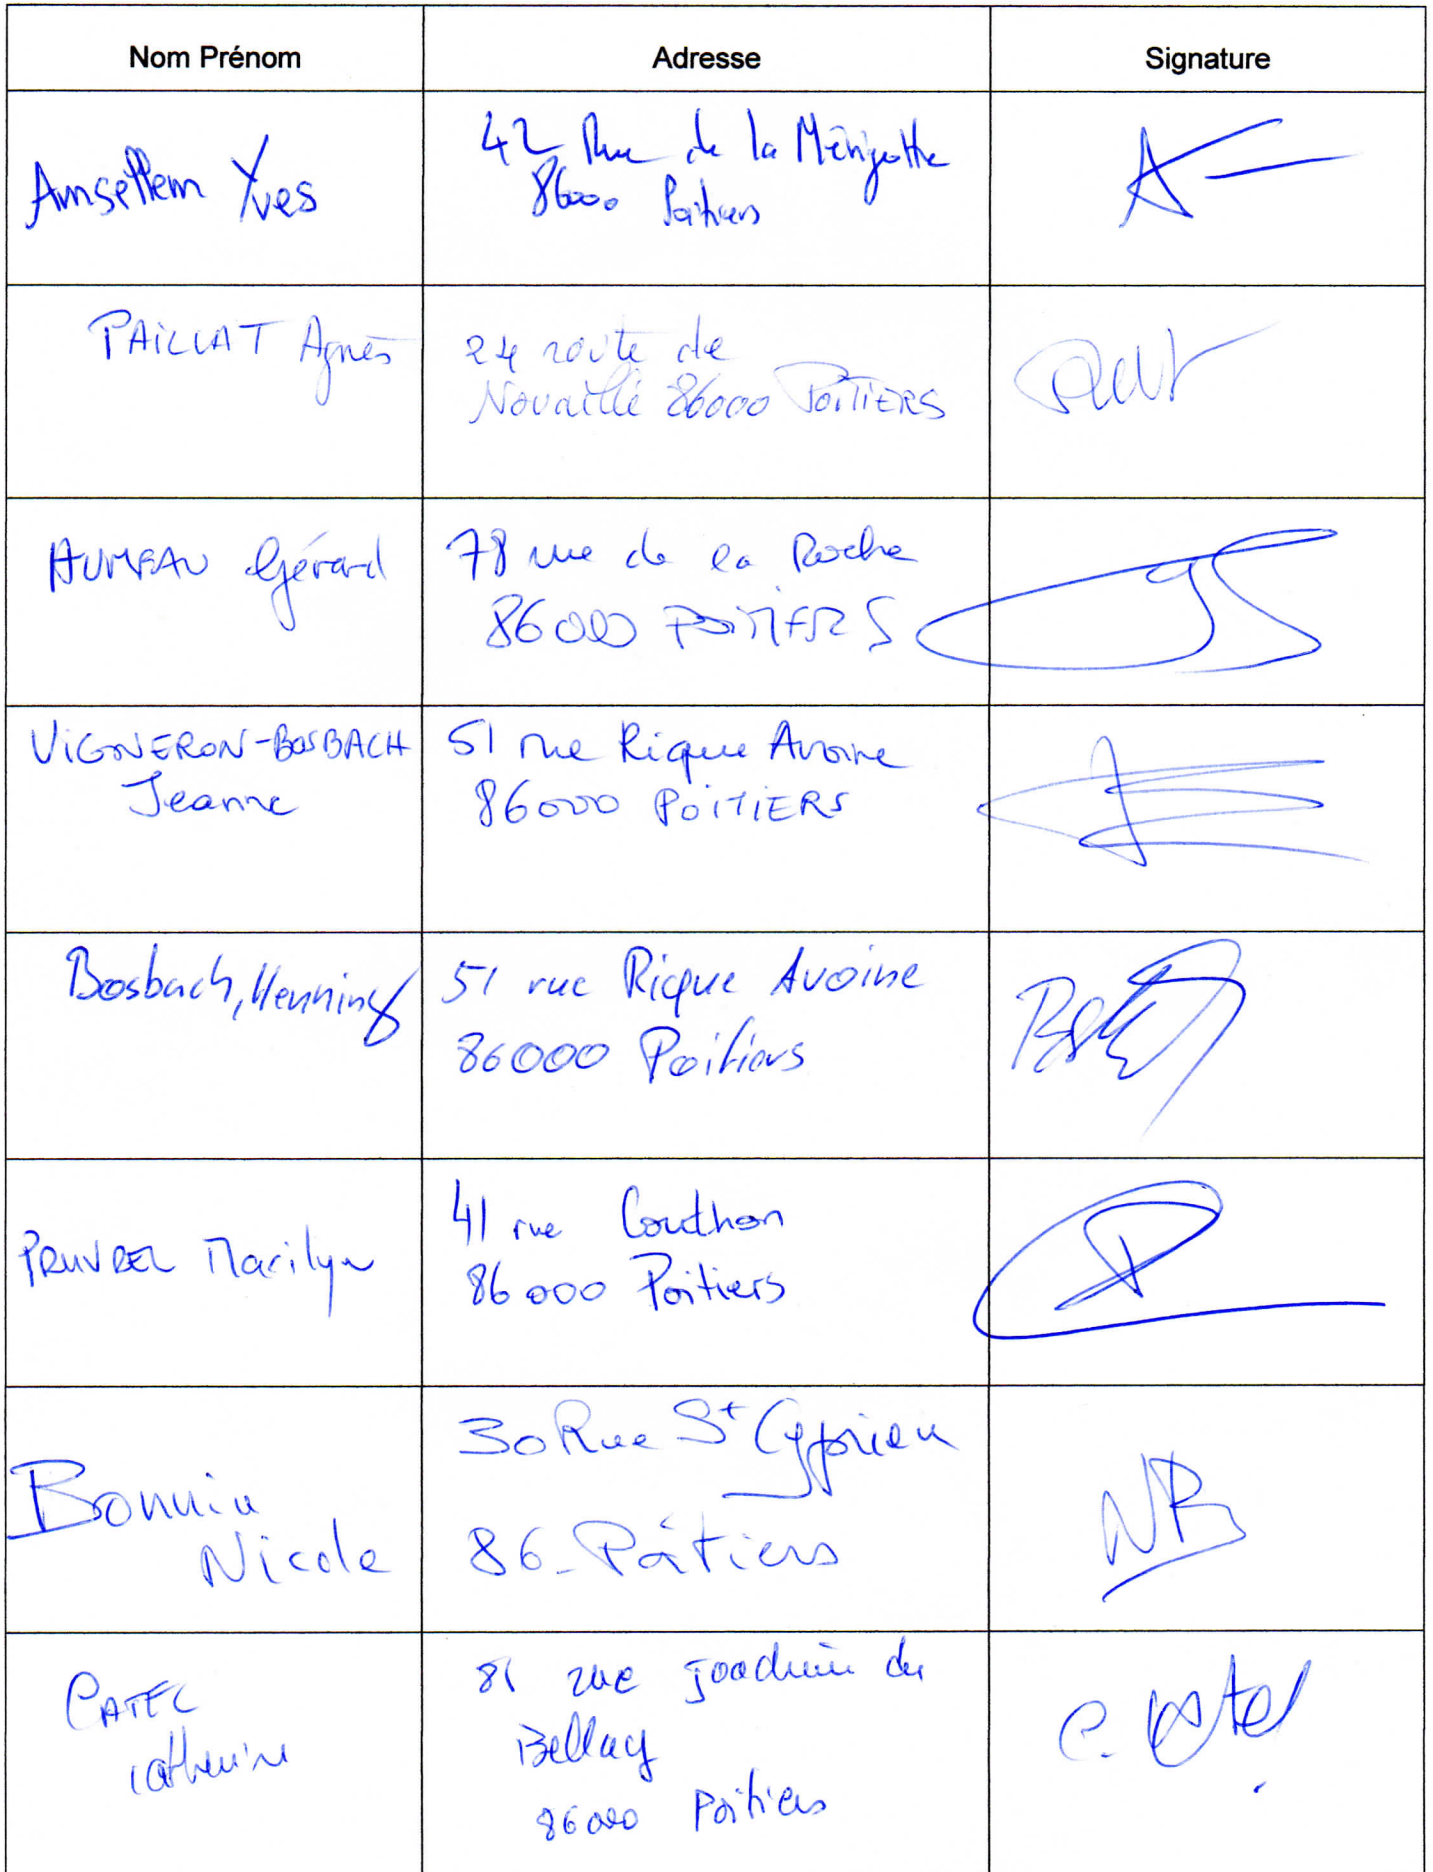 Nom Prénom Adresse Signature
Amsellem Yves
42 Rue de la Mérigotte
86000 Poitiers
PAILLAT Agnès
24 route de
Nouaillé 86000 POITIERS
AUMEAU Gérard
78 rue de la Roche
86000 POITIERS
VIGNERON-BOSBACH
Jeanne
51 rue Rique Avoine
86000 POITIERS
Bosbach, Henning
51 rue Rique Avoine
86000 Poitiers
Marilyn
41 rue Couthon
86000 Poitiers
Bonnin
Nicole
30 Rue St Cyprien
86_Poitiers
NB
CATEL
Catherine
81 rue Joachim du
Bellay
86000 Poitiers
C. Catel